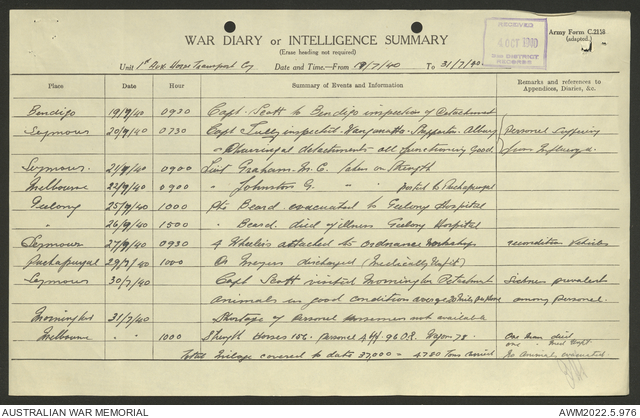 WAR DIARY or INTELLIGENCE SUMMARY
(Erase heading not required)
Army Form C.2118
(adapted.)
RECEIVED
4 OCT 1940
RECORDS
Unit 1st Aux Horse Transport Coy Date and Time—From /7/40 To 31/7/40
Place Date Hour Summary of Events and Information Remarks and references to Appendices, Diaries, &c.
Bendigo 19/7/40 0930 Capt. Scott to Bendigo inspection of Detachment
Seymour 20/7/40 0730 Capt Tully inspected Wangaratta Shepparton Albury Personel suffering
" detachments all functioning Good from Influenza
Seymour. 21/7/40 0900 Lieut Graham. M.C. taken on Strength
Melbourne 22/7/40 0900 " Johnston G. " " posted to Puckapunyal
Geelong 25/7/40 1000 Pte Beard. evacuated to Geelong Hospital
" 26/7/40 1500 " Beard. died of illness Geelong Hospital
Seymour 27/7/40 0930 4 Wheelers attached to Ordnance Workshops recondition Vehicles
Puckapunyal 29/7/40 1000 Dr Meyers discharged (Medically Unfit)
Seymour 30/7/40 Capt Scott visited Mornington Detachment Sickness prevalent
Animals in good condition average 20 Miles per among personel.
Mornington 31/7/40 Shortage of Personel Horsemen not available
Melbourne " " 1000 Strength Horses 156. personel 4 Off. 96 O.R. Wagons 78. One man died
one " Med Unfit.
Total Mileage covered to date 37,000 = 4720 Tons carried No Animals evacuated.
AUSTRALIAN WAR MEMORIAL
AWM2022.5.976